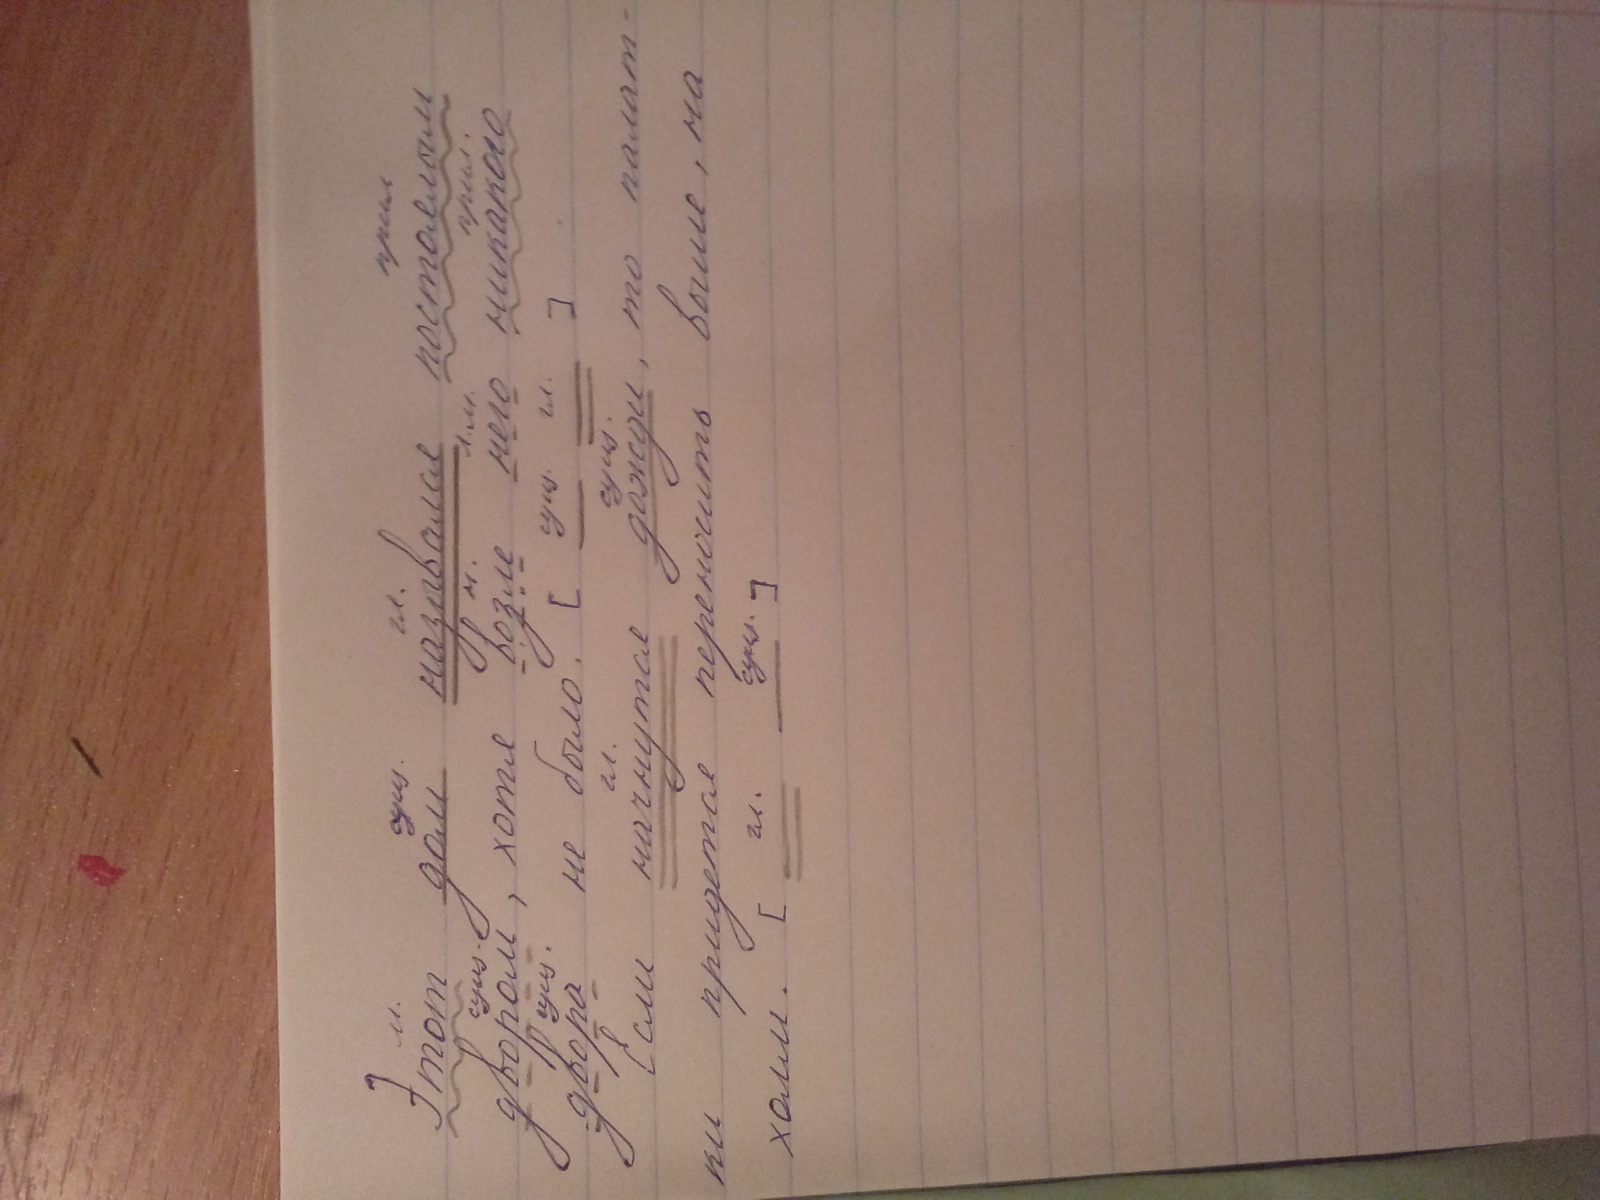 м. сущ. гл. прил
Этот дом назывался постоялым
сущ. н. л.м. прил.
двором, хотя возле него никакого
сущ. сущ. гл.
двора не было. [ ]
гл. сущ.
Если начнутся дожди, то палат-
ки придется переносить выше, на
гл. сущ.
холм. [ ]